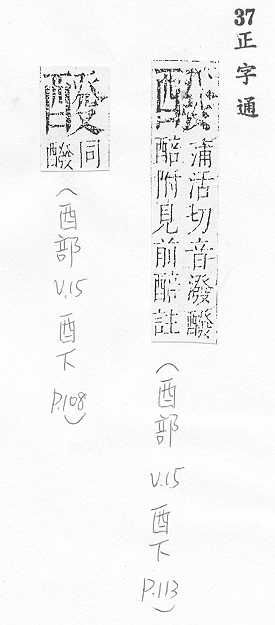 37 正字通
醱
浦活切音潑醱
醅附見前醅註
(酉部 v.15 酉下 p.113)
醱
同
醱
(酉部 v.15 酉下 p.108)